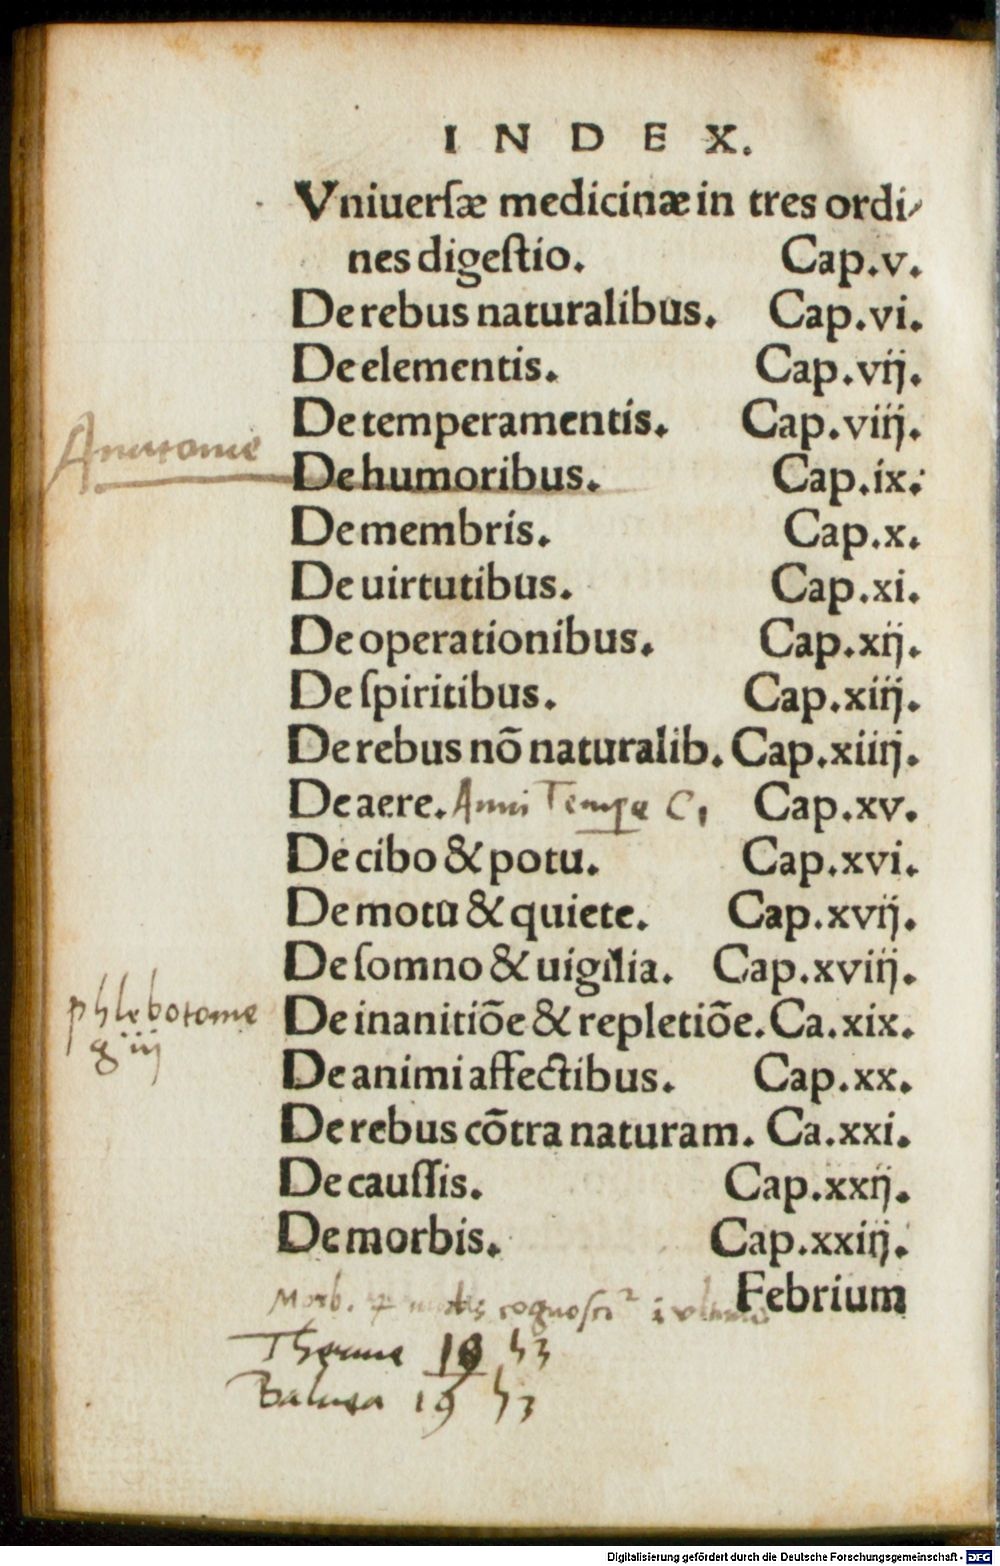 INDEX.
Vniuerſæ medicinæ in tres ordi⸗
nes digeſtio. Cap.v.
De rebus naturalibus. Cap.vi.
De elementis. Cap.vij.
De temperamentis. Cap.viij.
Anatomie
De humoribus. Cap.ix.
De membris. Cap.x.
De uirtutibus. Cap.xi.
De operationibus. Cap.xij.
De ſpiritibus. Cap.xiij.
De rebus nõ naturalib. Cap.xiiij.
De aere. Anni C Cap.xv.
De cibo & potu. Cap.xvi.
De motu & quiete. Cap.xvij.
De ſomno & uigilia. Cap.xviij.
phlebotomie
g iij
De inanitiõe & repletiõe. Ca.xix.
De animi affectibus. Cap.xx.
De rebus cõtra naturam. Ca.xxi.
De cauſſis. Cap.xxij.
De morbis. Cap.xxiij.
Febrium
Morb. cognoſci
Therme
Balnea 19
Digitalisierung gefördert durch die Deutsche Forschungsgemeinschaft - DFG